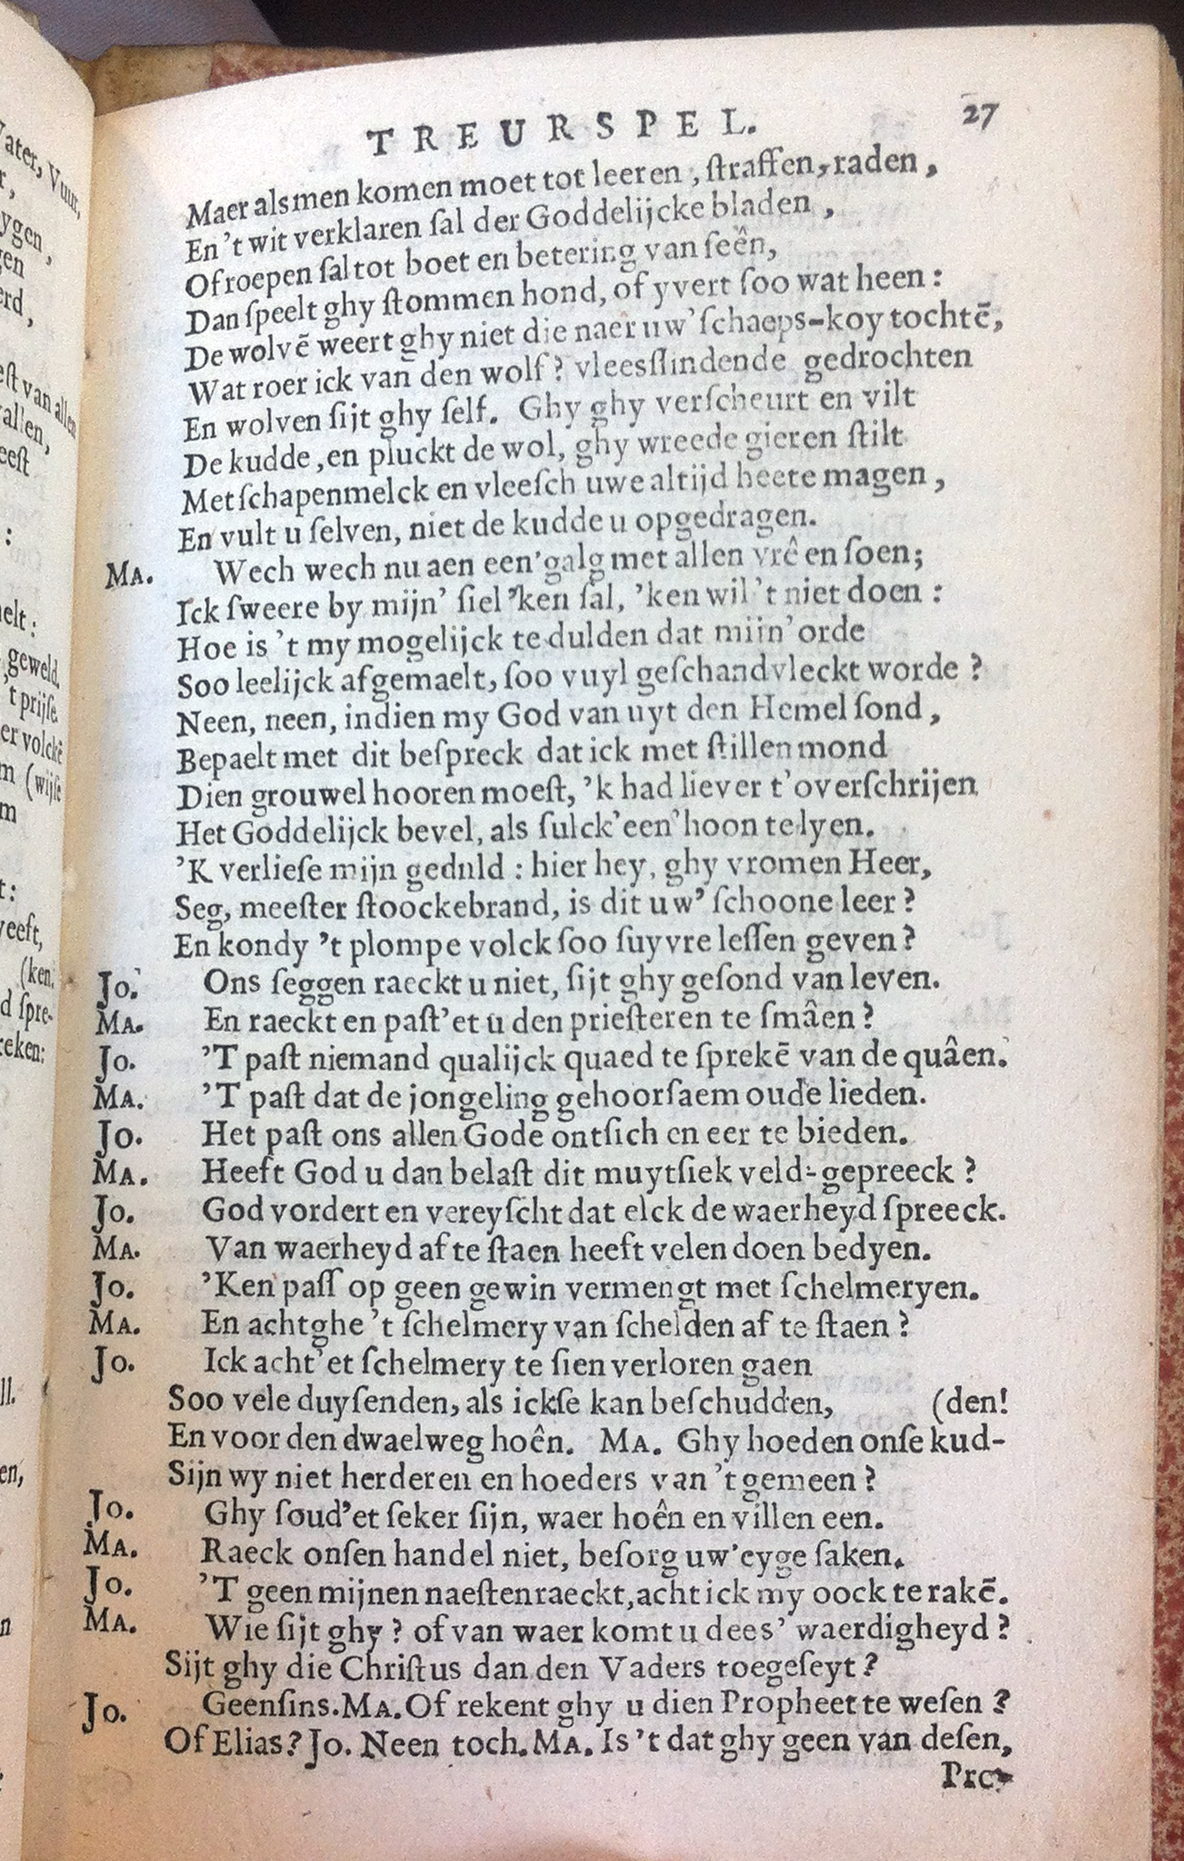 TREURSPEL. 27
Maer alsmen komen moet tot leeren, ſtraffen, raden,
En 't wit verklaren ſal der Goddelijcke bladen,
Of roepen ſal tot boet en betering van ſeên,
Dan ſpeelt ghy ſtommen hond, of yvert ſoo wat heen:
De wolvē weert ghy niet die naer uw' ſchaeps-koy tochtē,
Wat roer ick van den wolf? vleesſlindende gedrochten
En wolven ſijt ghy ſelf. Ghy ghy verſcheurt en vilt
De kudde, en pluckt de wol, ghy wreede gieren ſtilt
Met ſchapenmelck en vleeſch uwe altijd heete magen,
En vult u ſelven, niet de kudde u opgedragen.
MA. Wech wech nu aen een' galg met allen vrê en ſoen;
Ick ſweere by mijn' ſiel 'ken ſal, 'ken wil 't niet doen:
Hoe is 't my mogelijck te dulden dat mijn' orde
Soo leelijck afgemaelt, ſoo vuyl geſchandvleckt worde?
Neen, neen, indien my God van uyt den Hemel ſond,
Bepaelt met dit beſpreck dat ick met ſtillen mond
Dien grouwel hooren moeſt, 'k had liever t' overſchrijen
Het Goddelijck bevel, als ſulck' een' hoon te lyen.
'K verlieſe mijn geduld: hier hey, ghy vromen Heer,
Seg, meeſter ſtoockebrand, is dit uw' ſchoone leer?
En kondy 't plompe volck ſoo ſuyvre leſſen geven?
Jo. Ons ſeggen raeckt u niet, ſijt ghy geſond van leven.
MA. En raeckt en paſt' et u den prieſteren te ſmâen?
Jo. 'T paſt niemand qualijck quaed te ſprekē van de quâen.
MA. 'T paſt dat de jongeling gehoorſaem oude lieden.
Jo. Het paſt ons allen Gode ontſich en eer te bieden.
MA. Heeft God u dan belaſt dit muytſiek veld-gepreeck?
Jo. God vordert en vereyſcht dat elck de waerheyd ſpreeck.
MA. Van waerheyd af te ſtaen heeft velen doen bedyen.
Jo. 'Ken paſſ op geen gewin vermengt met ſchelmeryen.
MA. En achtghe 't ſchelmery van ſchelden af te ſtaen?
Jo. Ick acht' et ſchelmery te ſien verloren gaen
Soo vele duyſenden, als ickſe kan beſchudden, (den!
En voor den dwaelweg hoên. MA. Ghy hoeden onſe kud-
Sijn wy niet herderen en hoeders van 't gemeen?
Jo. Ghy ſoud' et ſeker ſijn, waer hoên en villen een.
MA. Raeck onſen handel niet, beſorg uw' eyge ſaken.
Jo. 'T geen mijnen naeſten raeckt, acht ick my oock te rakē.
MA. Wie ſijt ghy? of van waer komt u dees' waerdigheyd?
Sijt ghy die Chriſtus dan den Vaders toegeſeyt?
Jo. Geenſins. MA. Of rekent ghy u dien Propheet te weſen?
Of Elias? Jo. Neen toch. MA. Is 't dat ghy geen van deſen,
Pro-